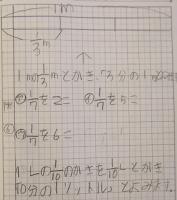 1m
1/3 m
1mの1/3mとかき、3分の1mとよみ
㋐1/7を2= ㋑1/7を5=
㋒1/7を6=
1Lの1/10のかさを1/10Lとかき
10分の1リットルとよみます。